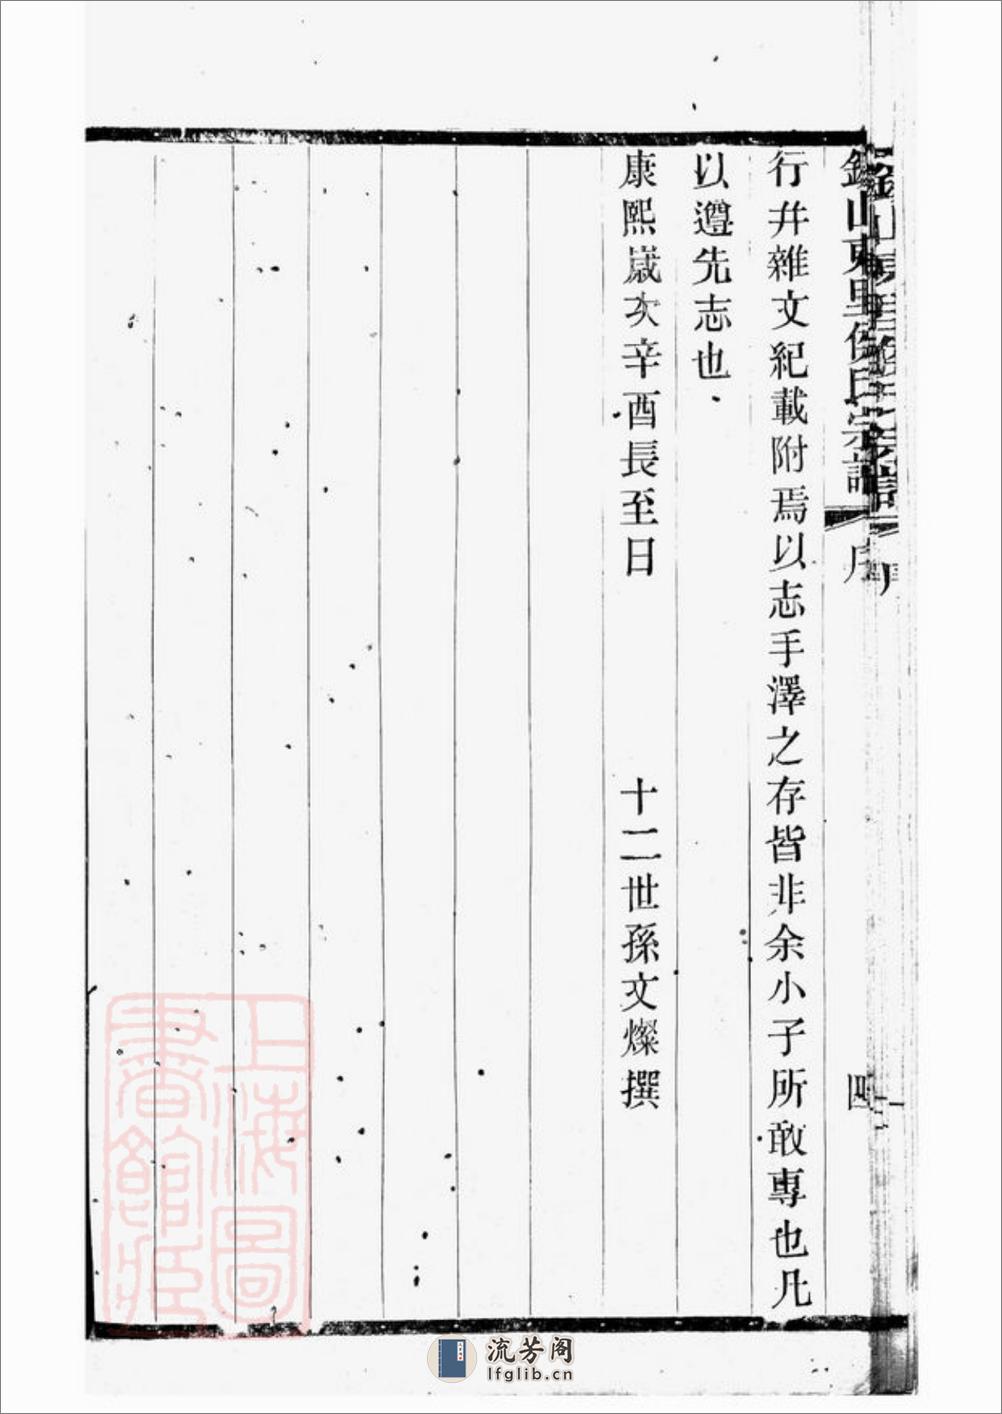 錫山東里侯氏宗譜
序
四
行幷雜文紀載附焉以志手澤之存皆非余小子所敢專也凡
以遵先志也
康熙歲次辛酉長至日 十二世孫文燦撰
上海圖
書館藏
流芳阁
lfglib.cn